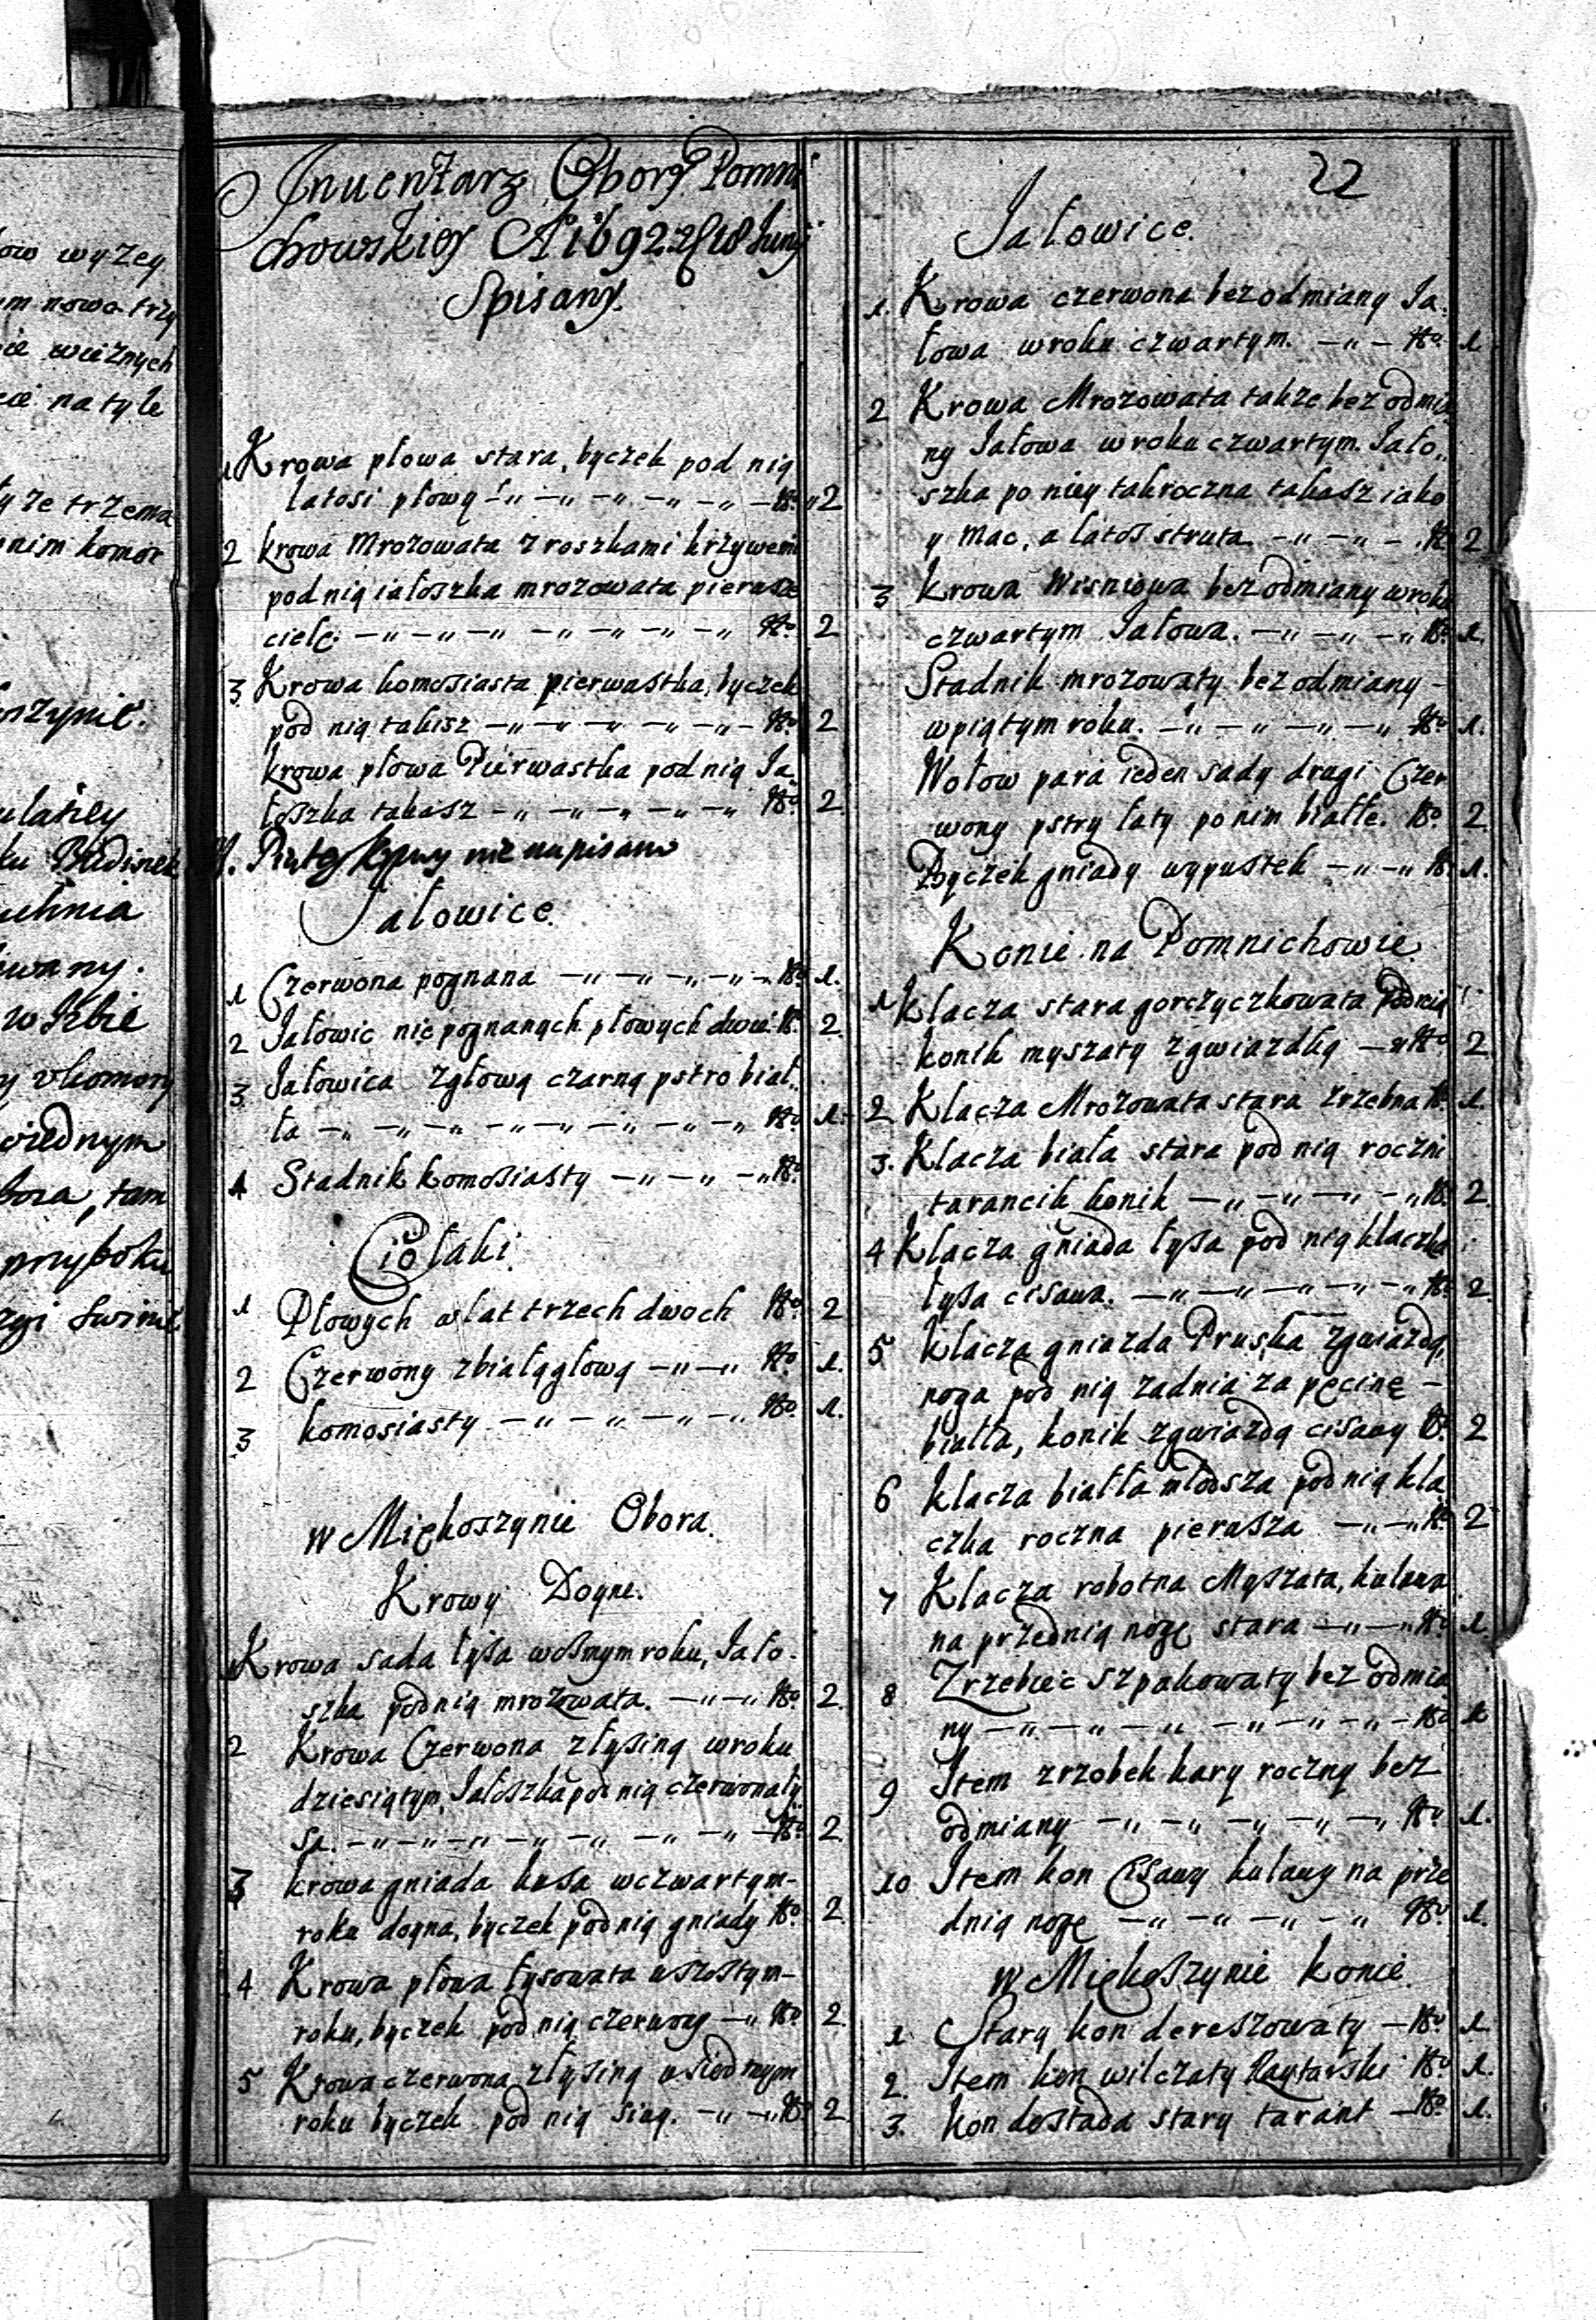 ow wyzey
m nowo trzy
ie wieznych
cie na tyle
y ze trzema
nim komor
oszynie.
ulatiey
ku Budinek
uhnia
wany.
w Izbie
y v komory
oiednym
bora, tam
przyboku
Inuentarz Obory Pomni
chowskiey A 1692 28 Junij
Spisany.
1 Krowa płowa stara, byczek pod nią
latosi płowy -"-"-"-"-"- No. 2
2 krowa Mrozowata z roszkami krzywemi
pod nią iałoszka mrozowata pierwsze
cielę. -"-"-"-"-"-"-" No. 2
3 Krowa komosiasta pierwastka, byczek
pod nią takisz -"-"-"-"-"- No. 2
krowa płowa Pierwastka pod nią Ja
łoszka takasz -"-"-"-"-" No. 2
Piątey krowy nie napisano
Jałowice.
1 Czerwona pognana -"-"-"-"- No. 1.
2 Jałowic nie pognanych płowych dwie No. 2
3 Jałowica z głową czarną pstro biał
ła -"-"-"-"-"-"-"-" No. 1.
4 Stadnik komosiasty -"-"-" No.
Ciołaki.
1 Płowych w lat trzech dwoch No. 2
2 Czerwony z białą głową -"-" No. 1.
3 komosiasty -"-"-"-" No. 1.
W Miękoszynie Obora.
Krowy Doyne.
1 Krowa sada łysa w osmym roku, Jało-
szka pod nią mrozowata. -"-" No. 2.
2 Krowa Czerwona z łysiną w roku
dziesiątym, Jałoszka pod nią czerwona ły
sa. -"-"-"-"-"-"-" No. 2
3 krowa gniada kusa w czwartym-
roku doyna, byczek pod nią gniady No. 2
4 Krowa płowa łysowata w szostym-
roku, byczek pod nią czerwony -" No. 2
5 Krowa czerwona z łysiną w siodmym
roku byczek pod nią siwy. -"-" No. 2
22
Jałowice.
1. Krowa czerwona bez odmiany Ja
łowa w roku czwartym. -"- No. 1
2 Krowa Mrozowata takze bez odmia
ny Jałowa w roku czwartym. Jało"
szka po niey takroczna takasz iako
y mac, a latos struta. -"-"- No. 2
3 krowa Wisniowa bez odmiany w roku
czwartym Jałowa. -"-"-" No. 1.
Stadnik mrozowaty bez odmiany -
w piątym roku. -"-"-"-" No. 1.
Wołow para ieden sady drugi Czer
wony pstry łaty po nim białłe. No. 2
Byczek gniady wypustek -"-" No. 1.
Konie na Pomnichowie.
1 Klacza stara gorczyczkowata Pod nią
konik myszaty z gwiazdką -" No. 2
2 Klacza Mrozowata stara zrzebna No. 1.
3. Klacza biała stara pod nią roczni
tarancik konik -"-"-"-" No. 2
4 Klacza gniada łysa pod nią klaczka
łysa cisawa. -"-"-"-"-" No. 2
5 klacza gniazda Pruska z gwiazdą,
noga pod nią zadnia za pęcinę -
białła, konik z gwiazdą cisawy No. 2
6 klacza białła młodsza pod nią kla
czka roczna pierwsza -"-" No. 2
7 Klacza robotna Myszata, kulawa
na przednią nogę stara -"-" No. 1
8 Zrzebiec szpakowaty bez odmia
ny -"-"-"-"-"-"- No. 1
9 Item zrzobek kary roczny bez
odmiany -"-"-"-"-" No. 1.
10 Item kon Cisawy kulawy na prze
dnią nogę -"-"-"-" No. 1.
W Miękoszynie konie.
1 Stary kon dereszowaty - No. 1
2. Item kon wilczaty Raytarski No. 1.
3. kon do stada stary tarant - No. 1.